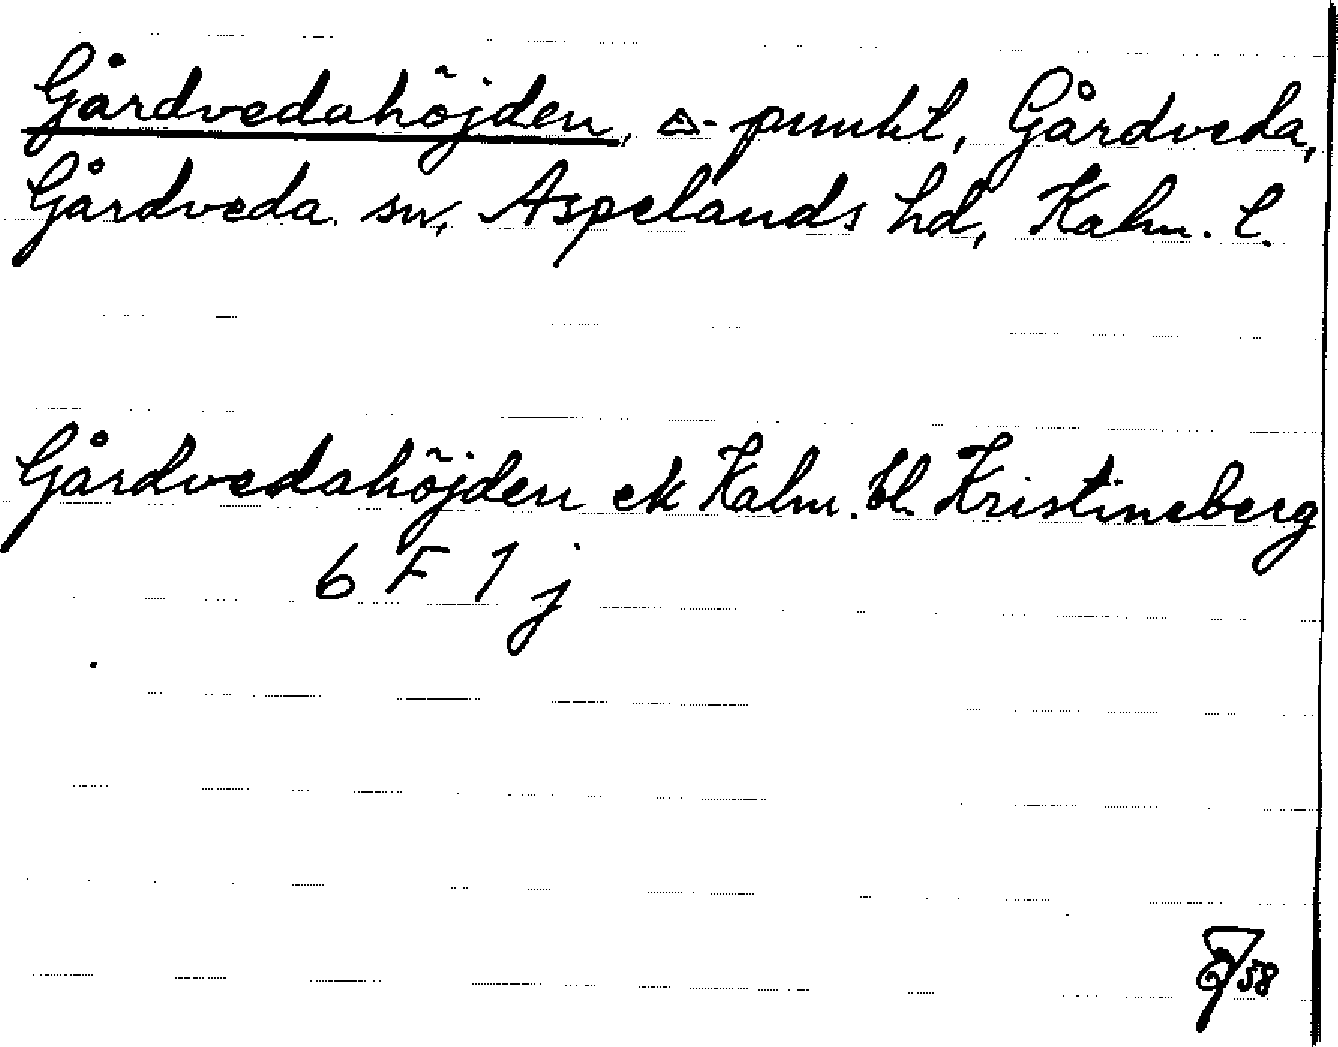 Gårdvedahöjden, △-punkt, Gårdveda,
Gårdveda sn, Aspelands hd, Kalm. l.
Gårdvedahöjden ek Kalm. bl. Kristineberg
6 F 1 j
58